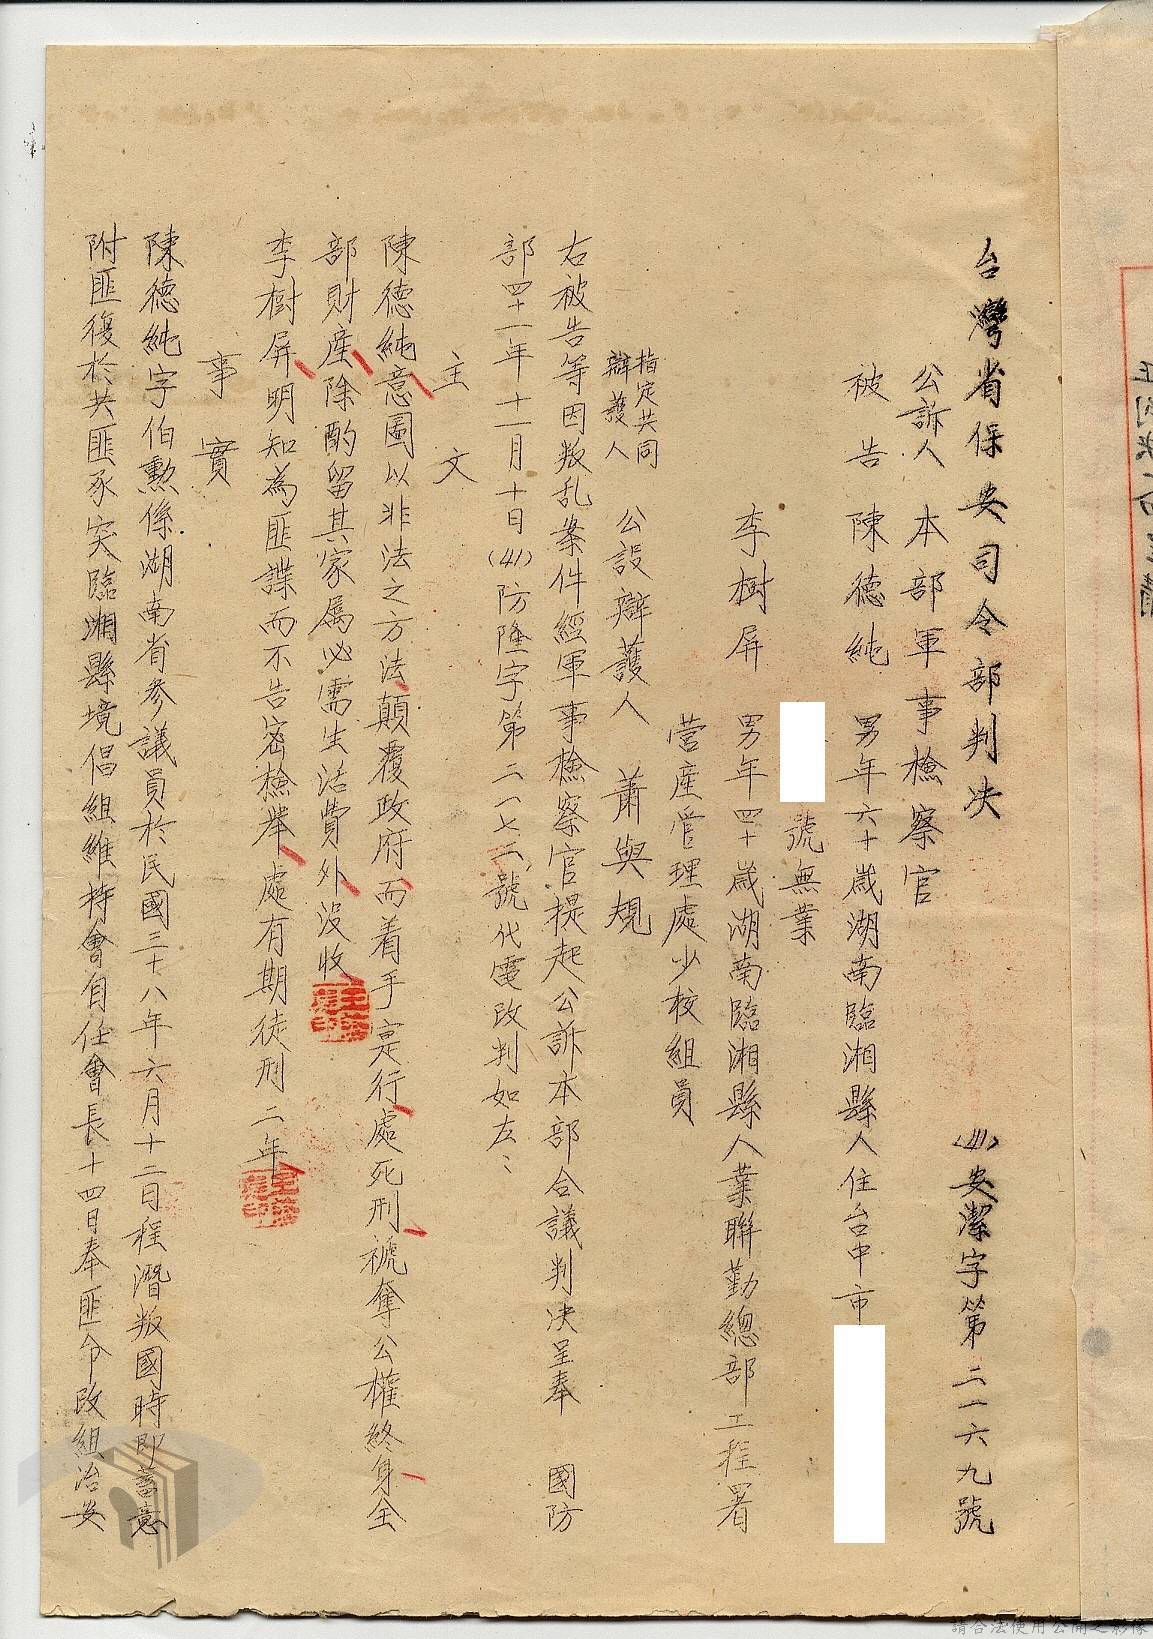 台灣省保安司令部判決
(41)安潔字第二一六九號
公訴人 本部軍事檢察官
被告 陳德純 男年六十歲湖南臨湘縣人住台中市
號無業
李樹屏 男年四十歲湖南臨湘縣人業聯勤總部工程署
營產管理處少校組員
指定共同
辯護人 公設辯護人 蕭與規
右被告等因叛乱案件經軍事檢察官提起公訴本部合議判决呈奉 國防
部四十一年十一月十日(41)防隆字第二一七二號代電改判如左：
主文
陳德純意圖以非法之方法顛覆政府而着手實行處死刑褫奪公權終身全
部財產除酌留其家屬必需生活費外沒收
李樹屏明知為匪諜而不告密檢舉處有期徒刑二年
事實
陳德純字伯勲係湖南省參議員於民國三十八年六月十二日程潛叛國時即蓄意
附匪復於共匪豕突臨湘縣境倡組維持會自任會長十四日奉匪令改組治安
請合法使用公開之影像